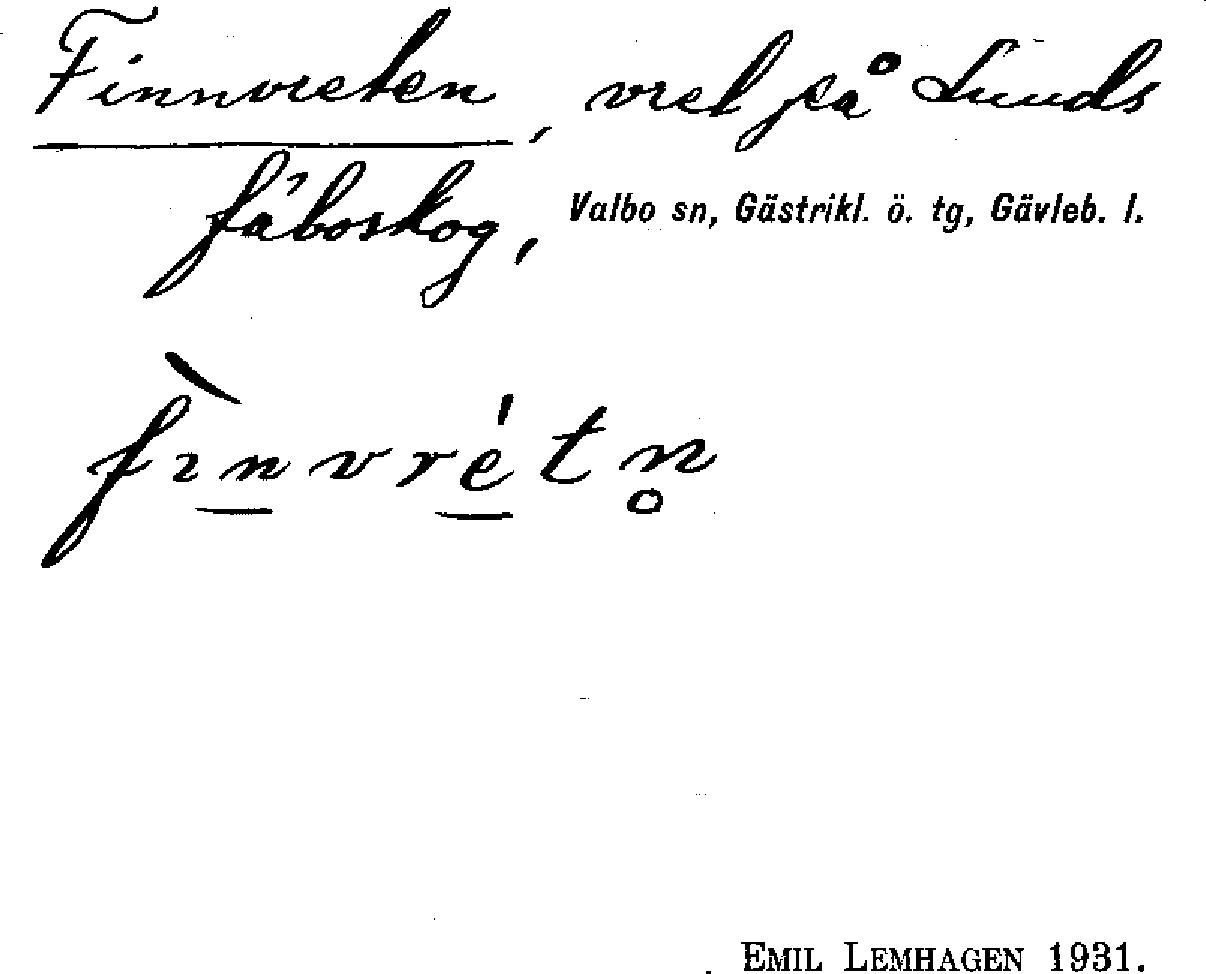 Finnvreten, vret på Lunds
fäboskog, Valbo sn, Gästrikl. ö. tg, Gävleb. l.
fìnvrétn̥
EMIL LEMHAGEN 1931.